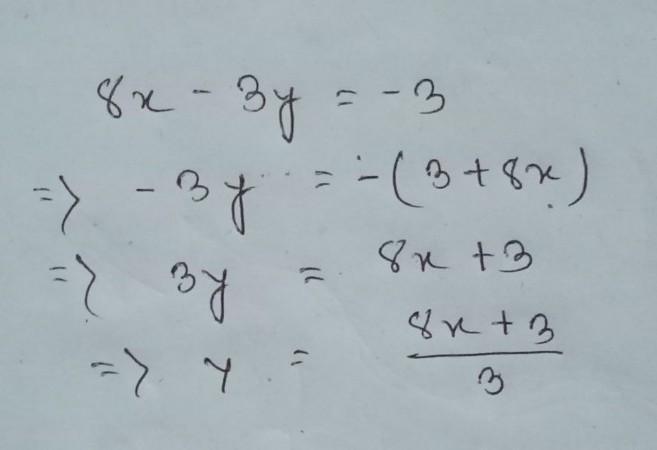 8x - 3y = -3
=> -3y = -(3+8x)
=> 3y = 8x+3
=> y = \frac{8x+3}{3}